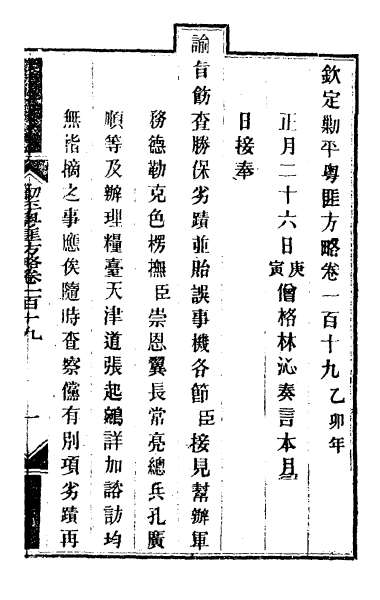 欽定剿平粤匪方略卷一百十九乙卯年
正月二十六日庚寅僧格林沁奏言本月
日接奉
諭旨飭查勝保劣蹟並貽誤事機各節臣接見幫辦軍
務德勒克色楞撫臣崇恩翼長常亮總兵孔廣
順等及辦理糧臺天津道張起鵷詳加諮訪均
無指摘之事應俟隨時查察儻有別項劣蹟再
剿平粤匪方略卷一百十九
一